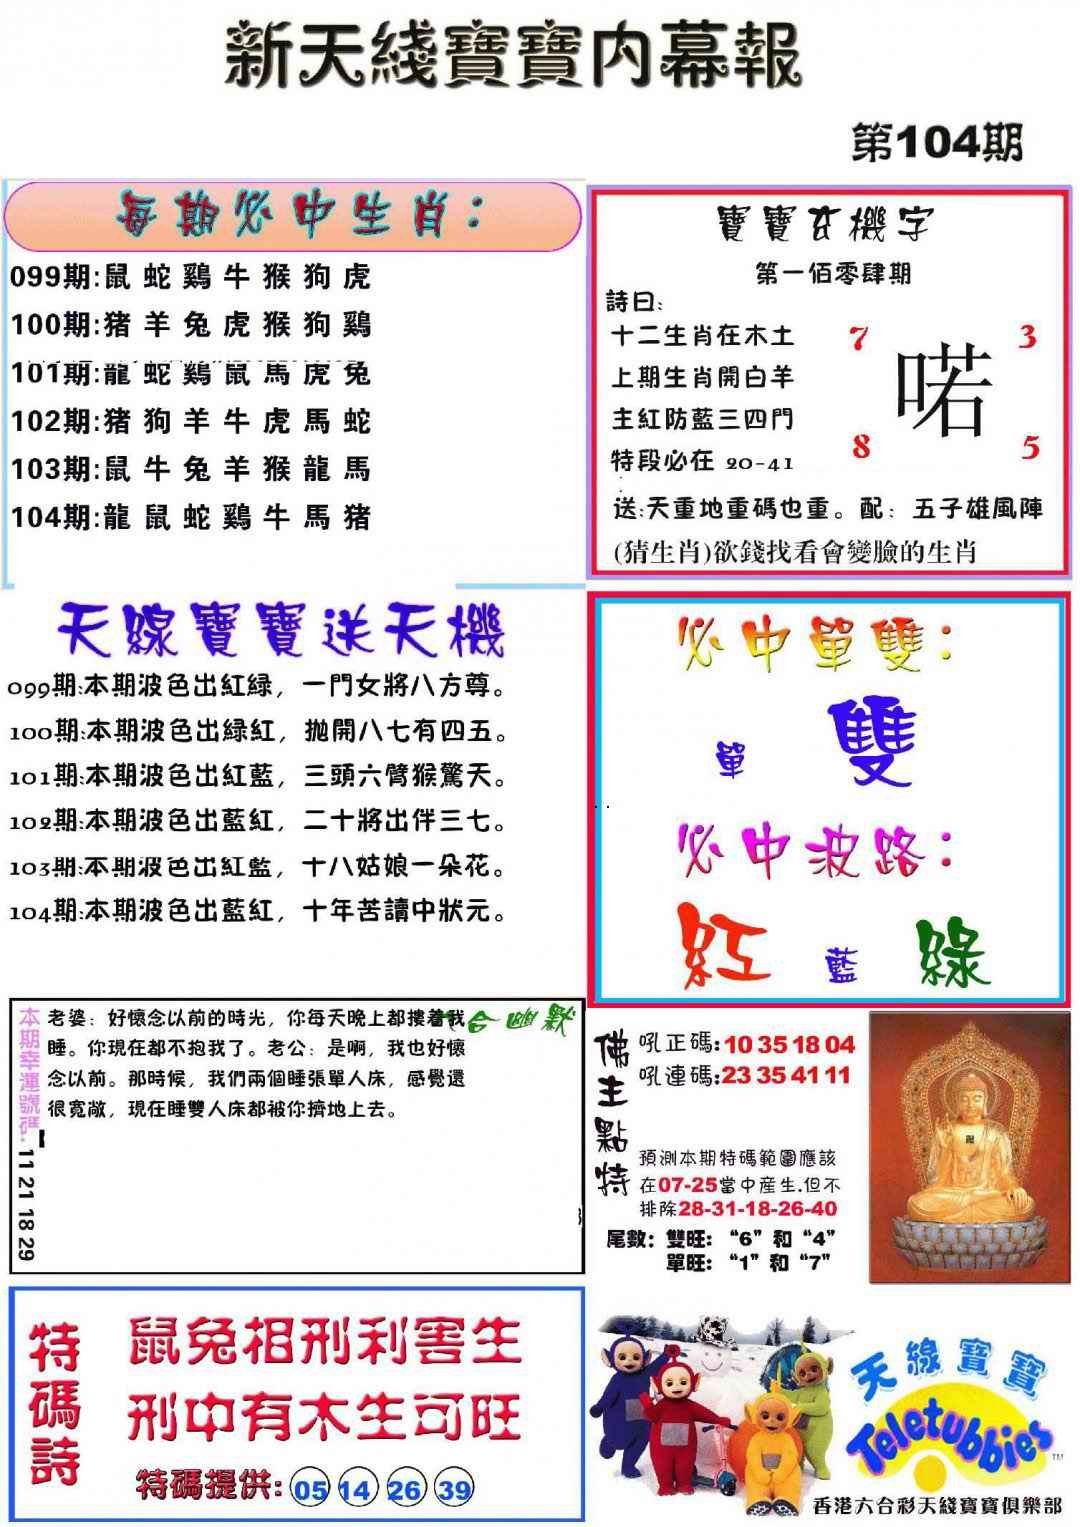 新天綫寶寶内幕報
第104期
每期必中生肖：
099期:鼠 蛇 鷄 牛 猴 狗 虎
100期:猪 羊 兔 虎 猴 狗 鷄
101期:龍 蛇 鷄 鼠 馬 虎 兔
102期:猪 狗 羊 牛 虎 馬 蛇
103期:鼠 牛 兔 羊 猴 龍 馬
104期:龍 鼠 蛇 鷄 牛 馬 猪
寶寶玄機字
第一佰零肆期
詩曰:
十二生肖在木土
上期生肖開白羊
主紅防藍三四門
特段必在 20-41
7 3
喏
8 5
送:天重地重碼也重。配：五子雄風陣
(猜生肖)欲錢找看會變臉的生肖
天線寶寶送天機
099期:本期波色出紅緑，一門女將八方尊。
100期:本期波色出緑紅，抛開八七有四五。
101期:本期波色出紅藍，三頭六臂猴驚天。
102期:本期波色出藍紅，二十將出伴三七。
103期:本期波色出紅藍，十八姑娘一朵花。
104期:本期波色出藍紅，十年苦讀中狀元。
必中單雙：
單 雙
必中波路：
紅 藍 綠
本期幸運號碼: 11 21 18 29
合幽默
老婆：好懷念以前的時光，你每天晚上都摟着我
睡。你現在都不抱我了。老公：是啊，我也好懷
念以前。那時候，我們兩個睡張單人床，感覺還
很寬敞，現在睡雙人床都被你擠地上去。
佛主點特
吼正碼:10 35 18 04
吼連碼:23 35 41 11
預測本期特碼範圍應該
在07-25當中産生.但不
排除28-31-18-26-40
尾數：雙旺：“6”和“4”
單旺：“1”和“7”
特碼詩
鼠兔相刑利害生
刑中有木生可旺
特碼提供: 05 14 26 39
天線寶寶
Teletubbies
TM
香港六合彩天綫寶寶俱樂部